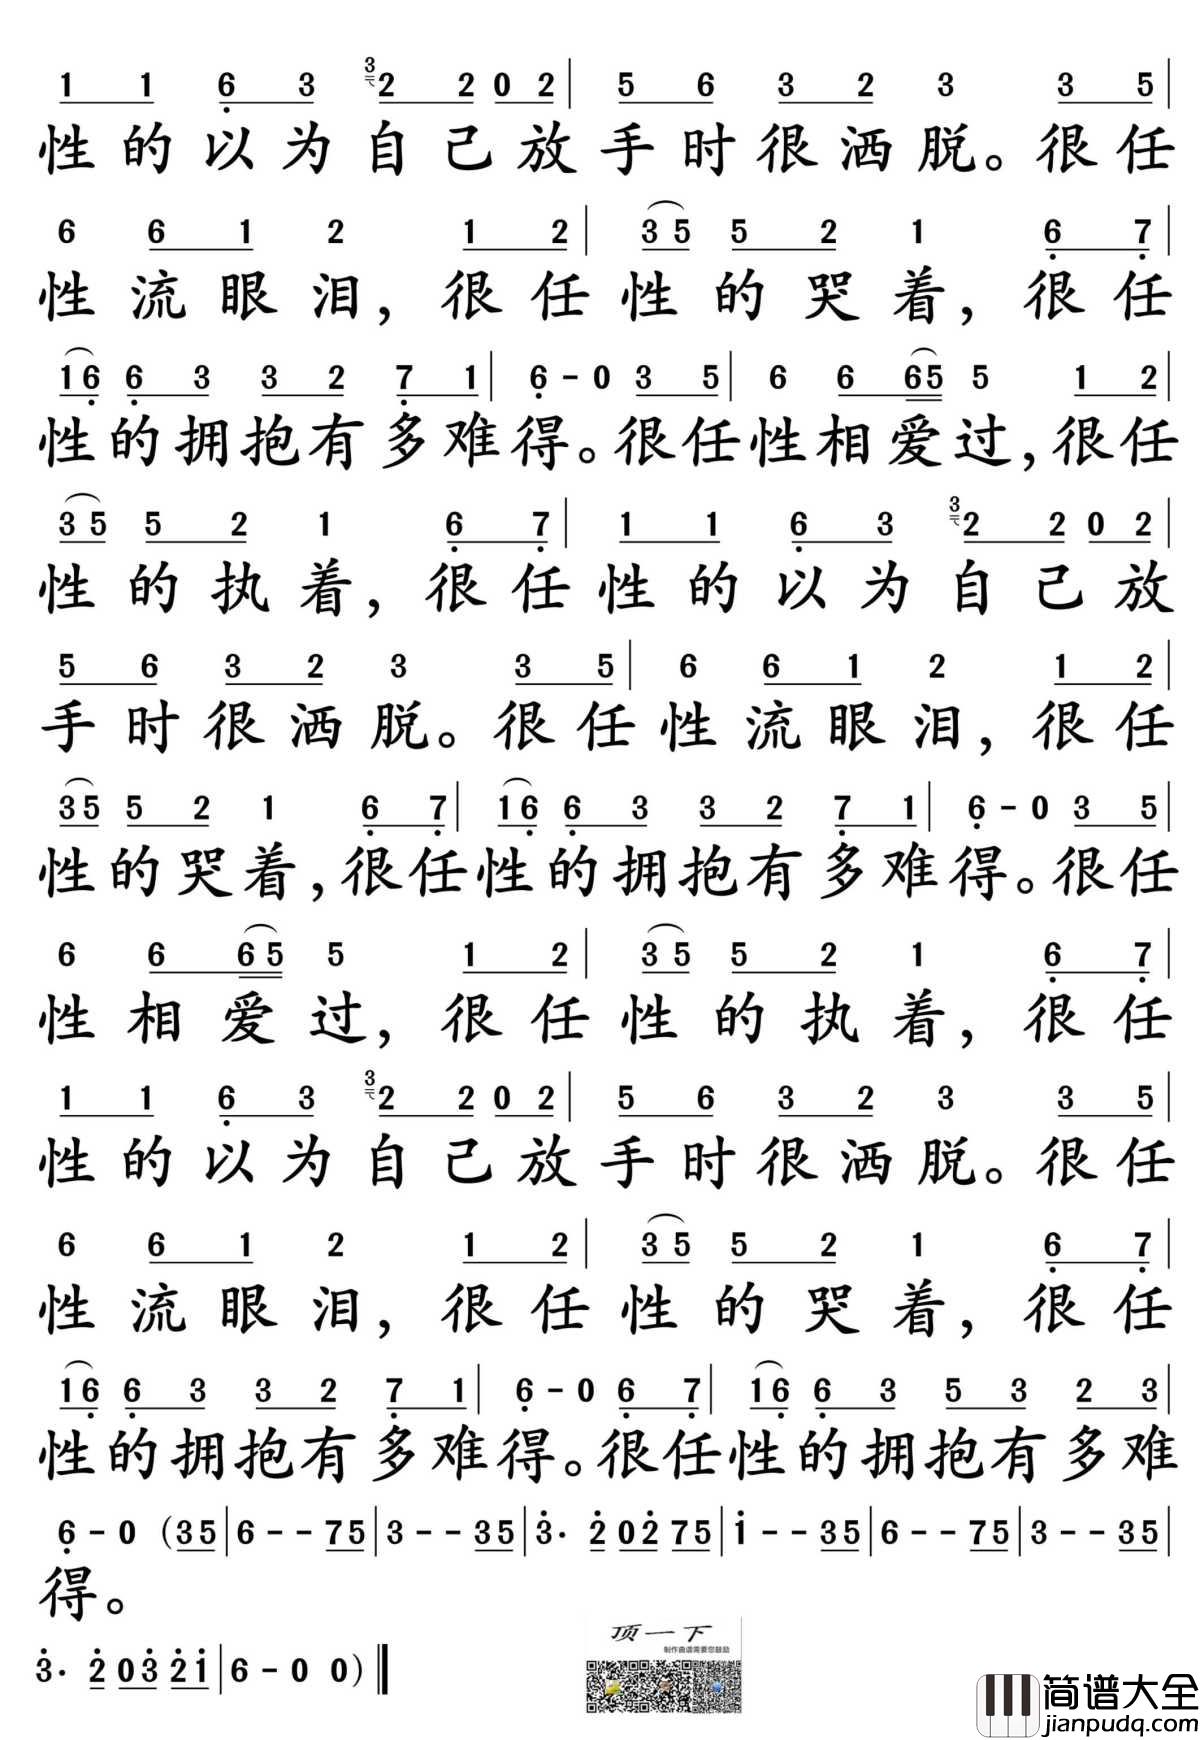 1 1 6 3 3 2 2 0 2 | 5 6 3 2 3 3 5 |
性的以为自己放手时很洒脱。很任
6 6 1 2 1 2 | 3 5 5 2 1 6 7 |
性流眼泪,很任性的哭着,很任
1 6 6 3 3 2 7 1 | 6 - 0 3 5 | 6 6 6 5 5 1 2 |
性的拥抱有多难得。很任性相爱过,很任
3 5 5 2 1 6 7 | 1 1 6 3 3 2 2 0 2 |
性的执着,很任性的以为自己放
5 6 3 2 3 3 5 | 6 6 1 2 1 2 |
手时很洒脱。很任性流眼泪,很任
3 5 5 2 1 6 7 | 1 6 6 3 3 2 7 1 | 6 - 0 3 5 |
性的哭着,很任性的拥抱有多难得。很任
6 6 6 5 5 1 2 | 3 5 5 2 1 6 7 |
性相爱过,很任性的执着,很任
1 1 6 3 3 2 2 0 2 | 5 6 3 2 3 3 5 |
性的以为自己放手时很洒脱。很任
6 6 1 2 1 2 | 3 5 5 2 1 6 7 |
性流眼泪,很任性的哭着,很任
1 6 6 3 3 2 7 1 | 6 - 0 6 7 | 1 6 6 3 5 3 2 3 |
性的拥抱有多难得。很任性的拥抱有多难
6 - 0 (3 5 | 6 - - 7 5 | 3 - - 3 5 | 3 · 2 0 2 7 5 | 1 - - 3 5 | 6 - - 7 5 | 3 - - 3 5 |
得。
3 · 2 0 3 2 1 | 6 - 0 0) ‖
顶一下
制作曲谱需要您鼓励
简谱大全
jianpudq.com